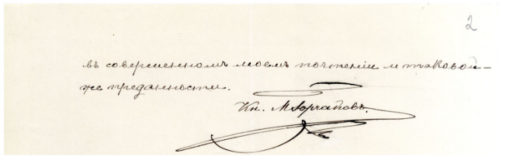 2
въ совершенномъ моемъ почтеніи и таковой-
же преданности.
Кн. М Горчаковъ.